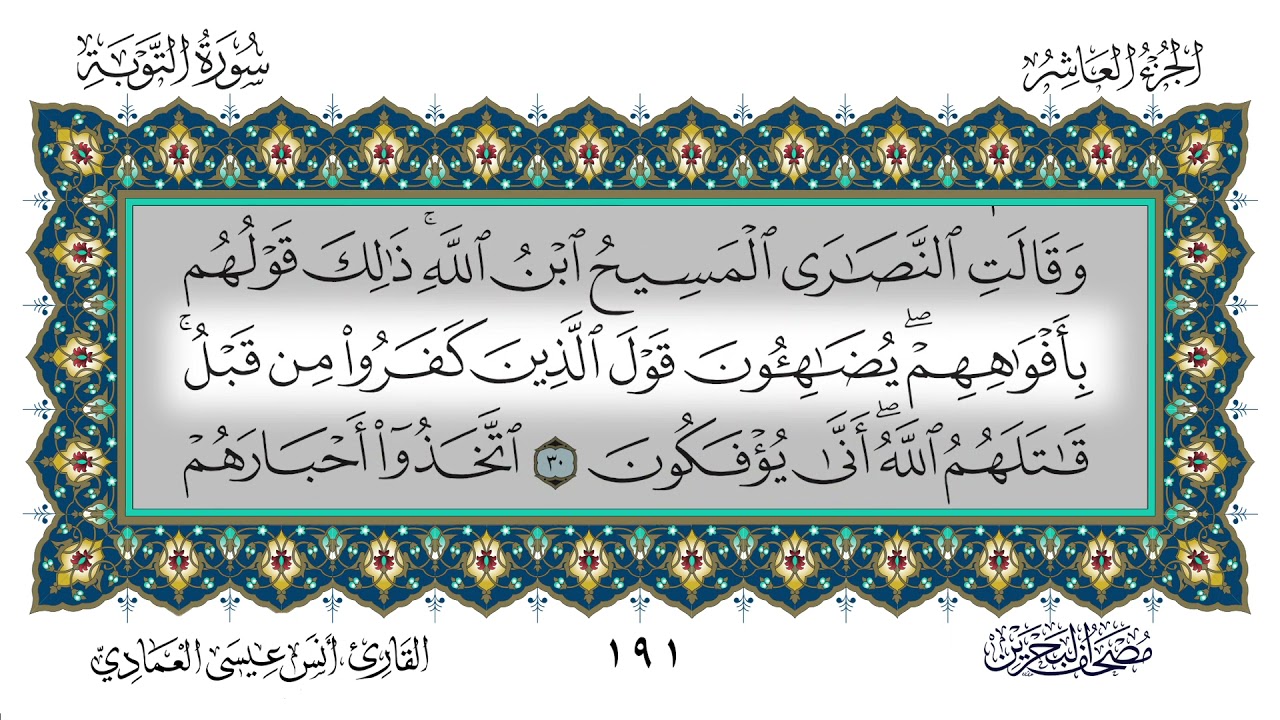 الجزء العاشر
سُورَةُ التَّوْبَةِ
وَقَالَتِ ٱلنَّصَٰرَى ٱلْمَسِيحُ ٱبْنُ ٱللَّهِۚ ذَٰلِكَ قَوْلُهُم
بِأَفْوَٰهِهِمْۖ يُضَٰهِـُٔونَ قَوْلَ ٱلَّذِينَ كَفَرُوا۟ مِن قَبْلُۚ
قَٰتَلَهُمُ ٱللَّهُۖ أَنَّىٰ يُؤْفَكُونَ ٣٠ ٱتَّخَذُوٓا۟ أَحْبَارَهُمْ
مصحف البحرين
١٩١
القارئ، أنس عيسى العمادي